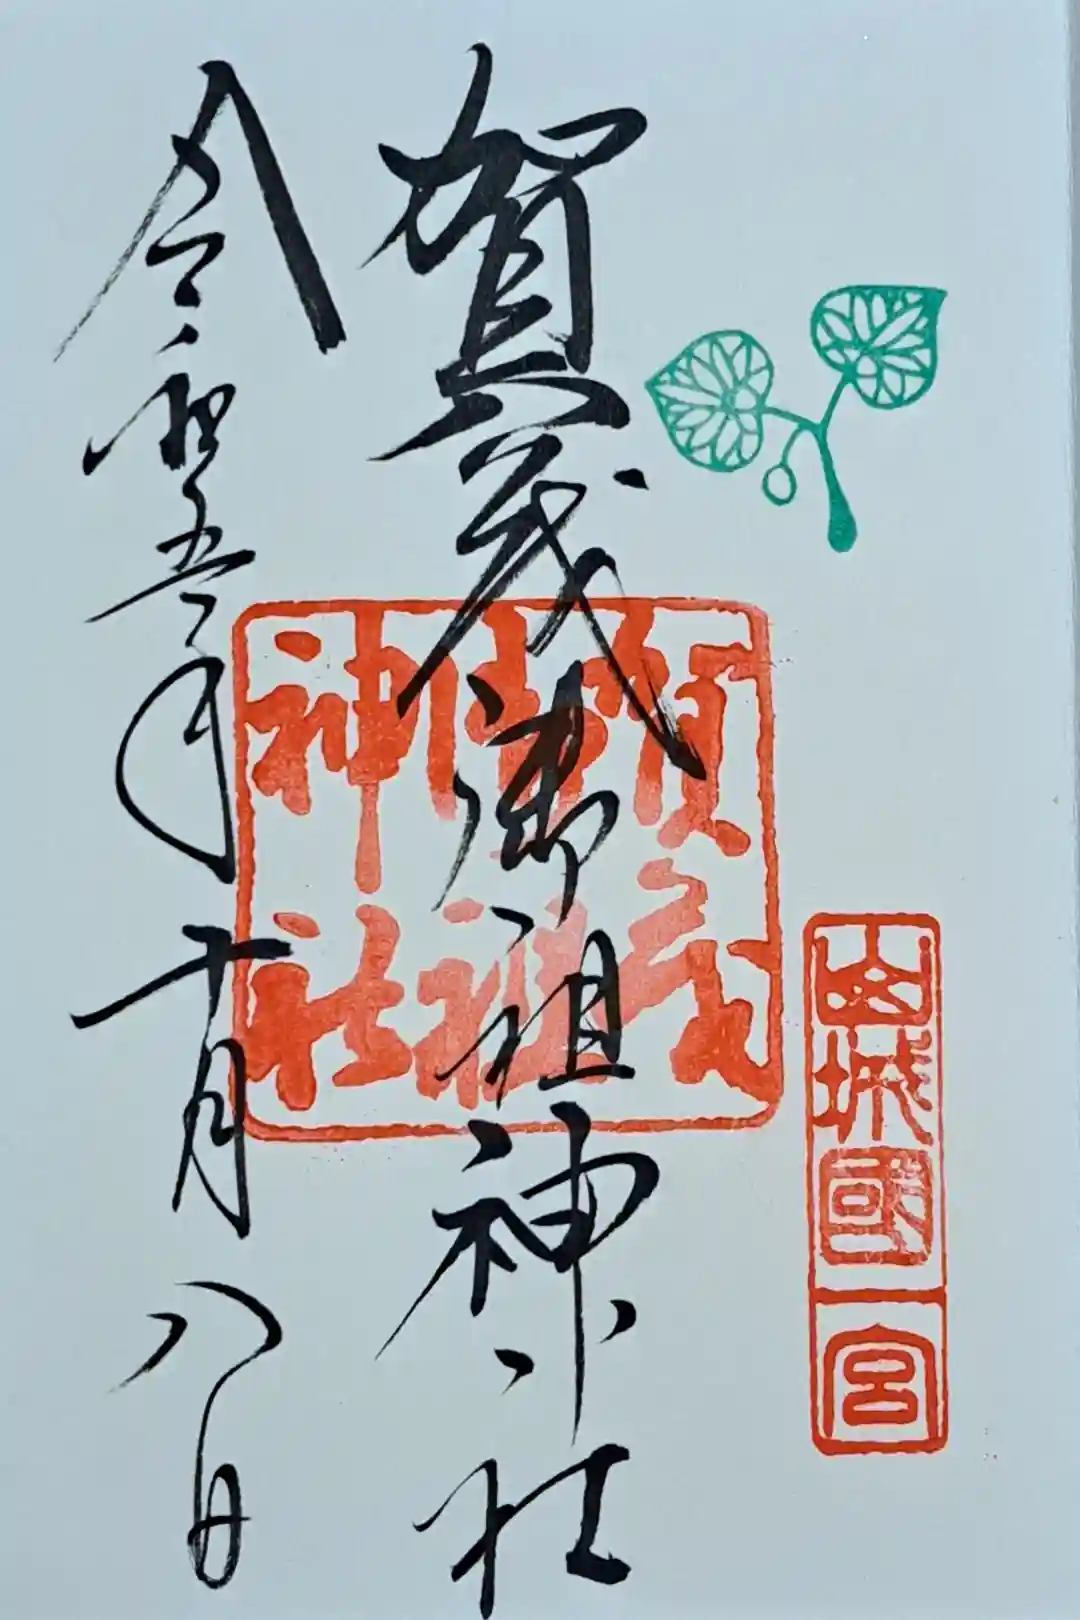 山城國一宮
賀茂御祖神社
賀茂
御祖
神社
令和五年十月八日